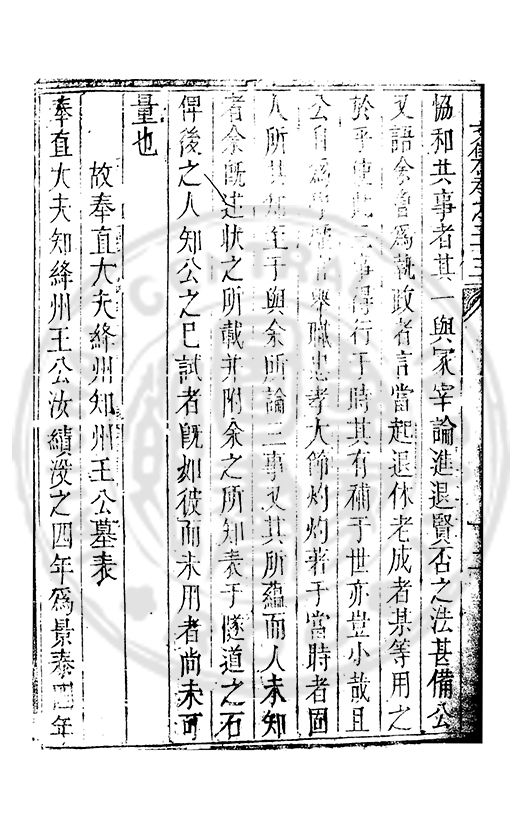 協和共事者其一與冡宰論進退賢否之法甚備公
又語余曾爲執政者言當起退休老成者某等用之
於乎使此三事得行于時其有補于世亦豈小哉且
公自爲學官舉職忠孝大節灼灼著于當時者固
人所共知至于與余所論三事又其所蘊而人未知
者余旣述狀之所載并附余之所知表于隧道之石
俾後之人知公之已試者旣如彼而未用者尚未可
量也
故奉直大夫絳州知州王公墓表
奉直大夫知絳州王公汝績没之四年爲景泰四年